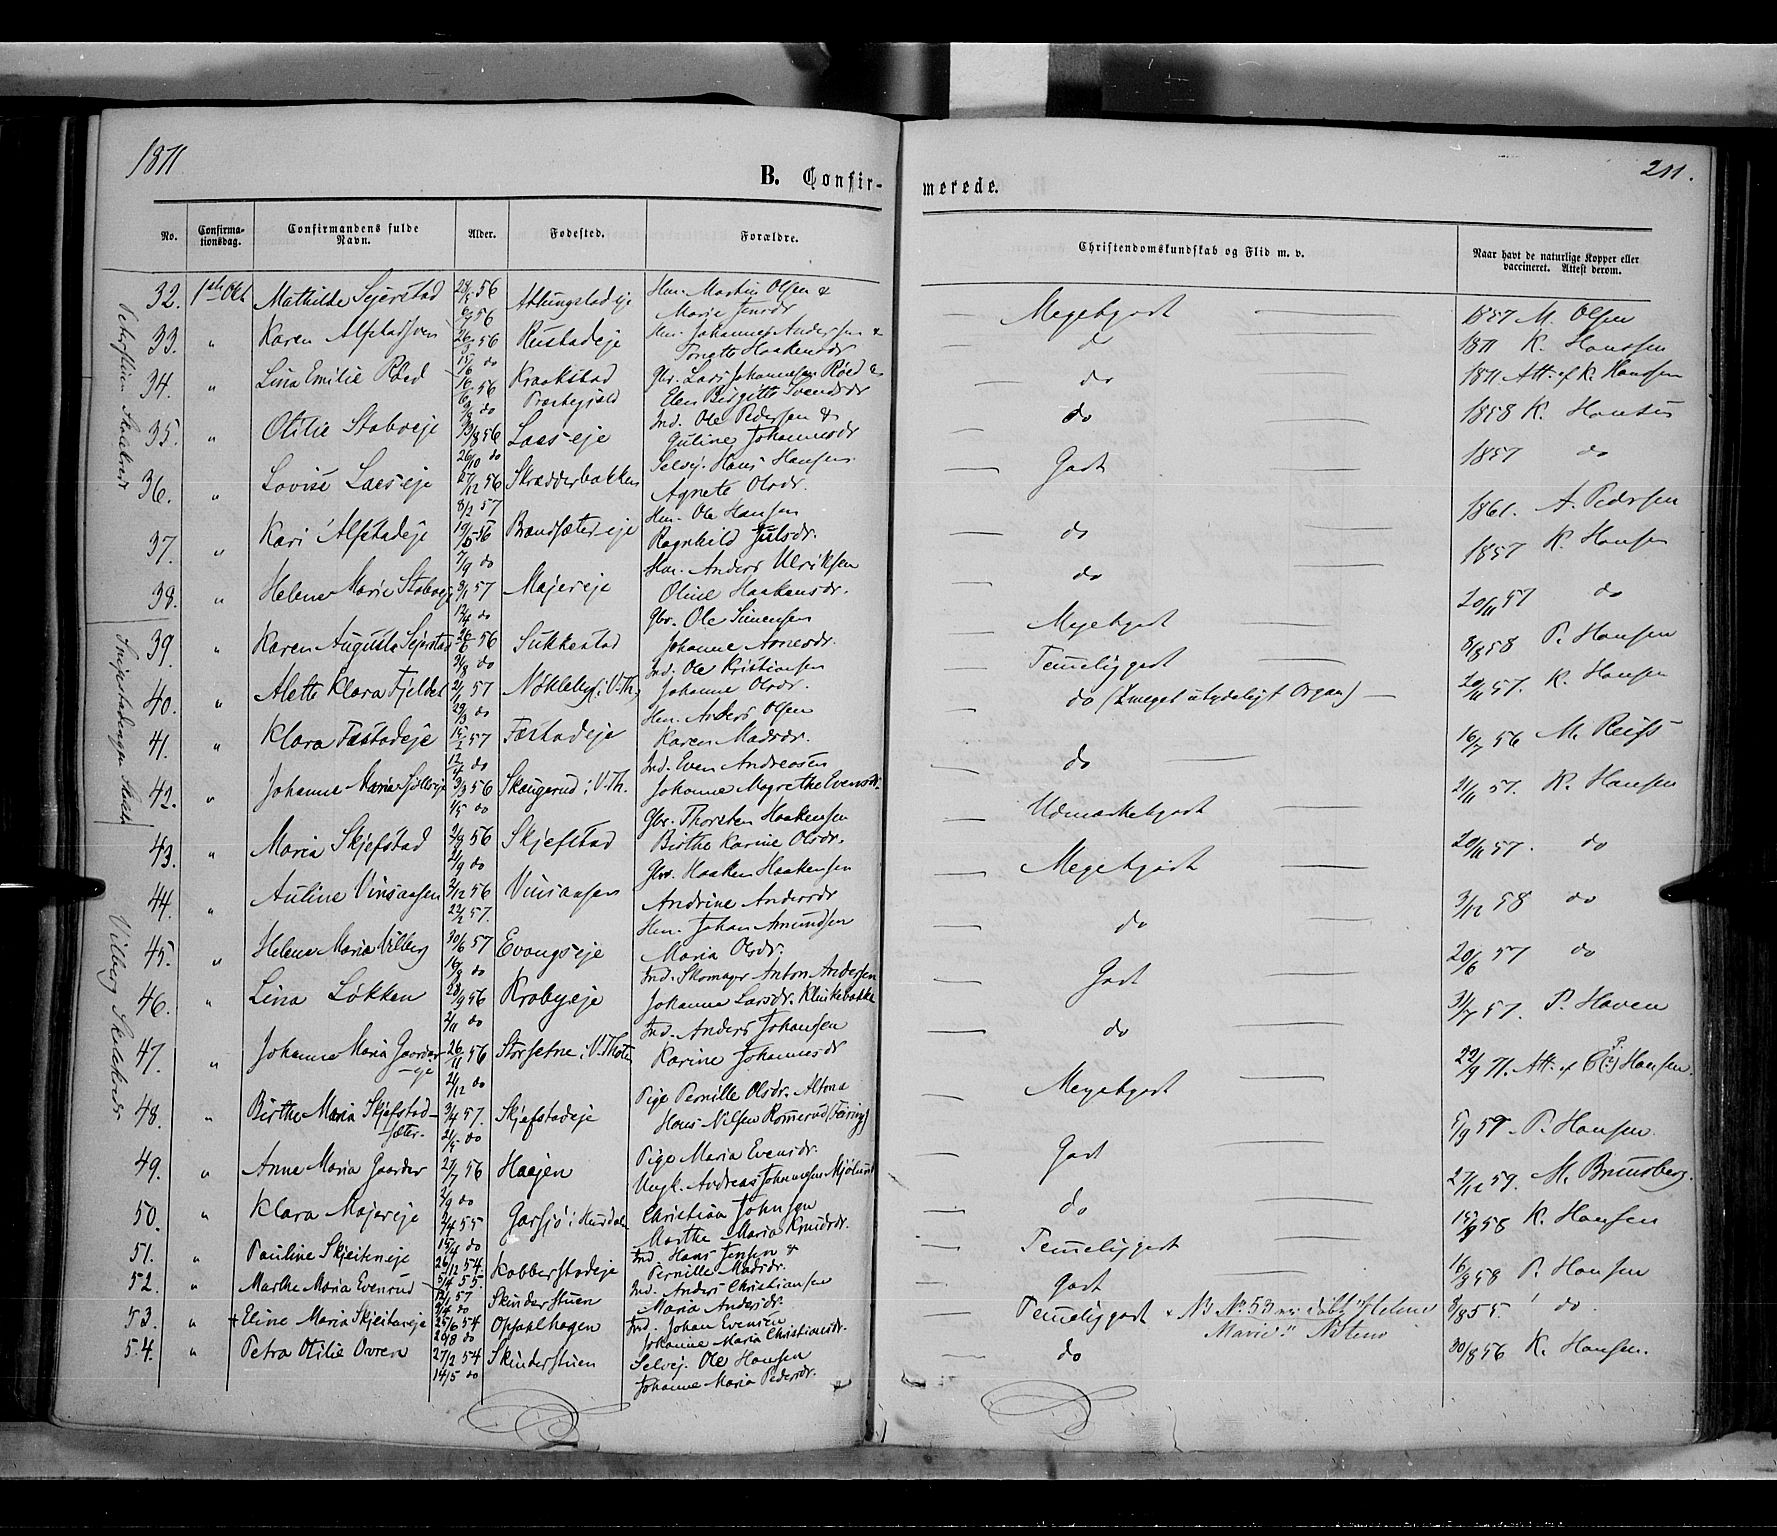 1871
B. Confir-
merede.
211.
No.
Confirma-
tionsdag.
Confirmandens fulde
Navn.
Alder.
Fødested.
Forældre.
Christendomskundskab og Flid m. v.
Naar havt de naturlige Kopper eller
vaccineret. Attest derom.
32. 1ste Oct Mathilde Sejerstad 56 Hm. Martin Olsen &
56 Marie Jensdr
Megetgodt 1857 M. Olsen
33. " Karen Alfstad 56 Rustadeje Hm. Johannes Andersen &
do Haakensdr
do 1871 K. Hansen
34. " Lina Emilie Røed 16/6 56 Kraakstad Gbr. Lars Johannesen Røed &
do Præstegjeld Elen Birgitte Svendsdr
do 1871 Att. af K. Hansen
35. " Otilie Staboeje 56 Laeseje Ind. Ole Pedersen &
26/10 do Guline Johannesdr
do 1858 K. Hansen
36. " Lovise Laeseje 27/12 56 Skrædderbakken Selvej. Hans Hansen
8/2 57 Agnete Olsdr.
Godt 1857 do
37. " Kari Alfstadeje 56 Brandsætereje Hm. Ole Hansen
7/9 do Ragnhild Julsdr.
do 1861. A. Pedersen
38. " Helene Marie Staboeje 9/1 57 Majereje Hm. Anders Ulriksen
12/4 do Oline Haakensdr.
do 1857 K. Hansen
39. " Karen Augusta Sejerstad 26/6 56 Sukkestad Gbr. Ole Simensen
3/8 do Johanne Arnesdr.
Megetgodt 20/11 57 do
40. " Alette Klara Fjeldet 21/1 57 Nøkleby i V.Th. Ind. Ole Kristiansen
29/3 do Johanne Olsdr.
Temeliggodt 8/8 58 P. Hansen
41. " Klara Fæstadeje 15/2 57 Fæstadeje Hm. Anders Olsen
12/4 do Karen Madsdr.
do (Meget utydeligt Organ) 20/11 57. K. Hansen
42. " Johanne Marie 9/3 56 Skaugerud i V.Th. Ind. Even Andreasen
1/5 do Johanne Magrethe Evensdr.
do 16/7 56 M. Reifs
43. " Maria Skjefstad 2/8 56 Skjefstad Gbr. Thorsten Haakensen
21/9 do Birthe Karine Olsdr.
Udmærketgodt 21/11 57. K. Hansen
44. " Auline Vinsaasen 2/12 56 Vinsaasen Gbr. Haaken Haakensen
22/2 57. Andrine Andersdr
Megetgodt 20/11 57. do
45. " Helene Maria Vilberg 30/6 57 Evangseje Hm. Johan Amundsen
16/8 do Maria Olsdr.
do 3/12 58 do
46. " Lina Løkken 28/9 56 Krabyeje Ind. Skomager Anton Andersen
2/11 do Johanne Larsdr. Klinkebakke
Godt 20/6 57 do
47. " Johanne Maria Gaarder- 26/11 56 Storsetne i V.Thoten Ind. Anders Johansen
eje 21/12 do Karine Johannesdr
do 31/7 57. P. Haven
48. " Birthe Maria Skjefstad- 3/4 57. Skjefstadeje Pige Pernille Olsdr. Altona
sæter. 21/5 do Hans Nilsen Rømerud (Feiring)
Megetgodt 22/9 71. Att. af P. Hansen.
49. " Anne Maria Gaarder 27/7 56 Haajen Pige Maria Evensdr.
2/9 do Ungk. Andreas Johannesen Mjølnerud
Godt 5/9 59. P. Hansen
50. " Klara Majereje 9/4 55 Garsjø i Hurdalen Christian Johnsen
15/4 do Marthe Maria Knudsdr.
do 27/12 59. M. Brunsberg.
51. " Pauline Skjeitneeje 26/12 54. Kobberstadeje Ind. Hans Jensen &
5/4 55. Pernille Madsdr.
Temeliggodt 58 K. Hansen
52. " Marthe Maria Evenrud 12/1 57 Skinderstuen Ind. Anders Christiansen
9/4 do Maria Andersdr.
Godt 16/8 58 P. Hansen
53. " + Eline Maria Skjeitneeje 25/6 54 Opsahlhagen Ind. Johan Evensen
20/8 do Johanne Maria Christiansdr.
Temeliggodt × NB No. 53 er døbt "Helene
Marie" 8/8 55. do
54. " Petra Otilie Ovren 27/2 54 Skinderstuen Selvej. Ole Hansen
14/5 do Johanne Maria Pedersdr.
do 30/8 56 K. Hansen.
Vilberg Skolekrds